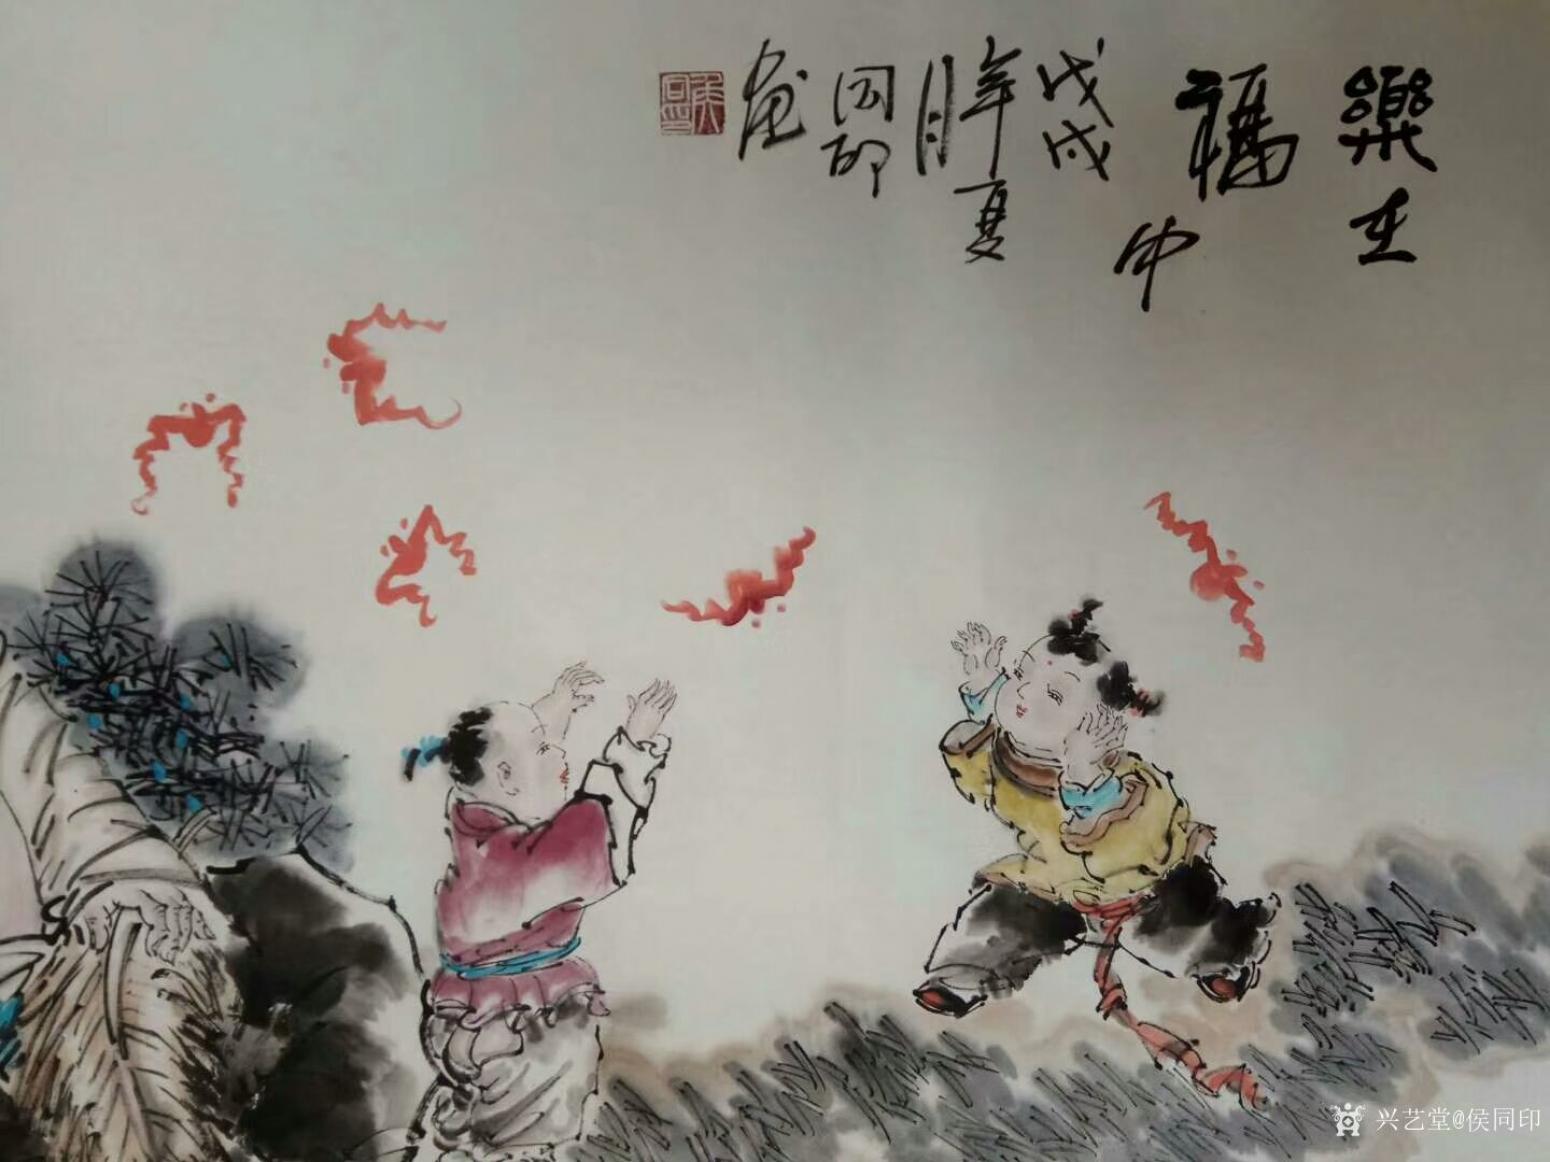 樂在
福中
戊戌
年夏
月
同印
画
兴艺堂@侯同印